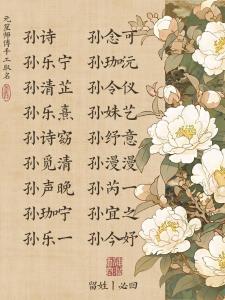 元笙师傅手工取名
孙诗 孙念可
孙乐宁 孙珈沅
孙清芷 孙令仪
孙乐熹 孙姝艺
孙诗窈 孙纾意
孙觅清 孙漫漫
孙声晚 孙芮一
孙珈咛 孙宜之
孙乐一 孙今妤
留姓丨必回